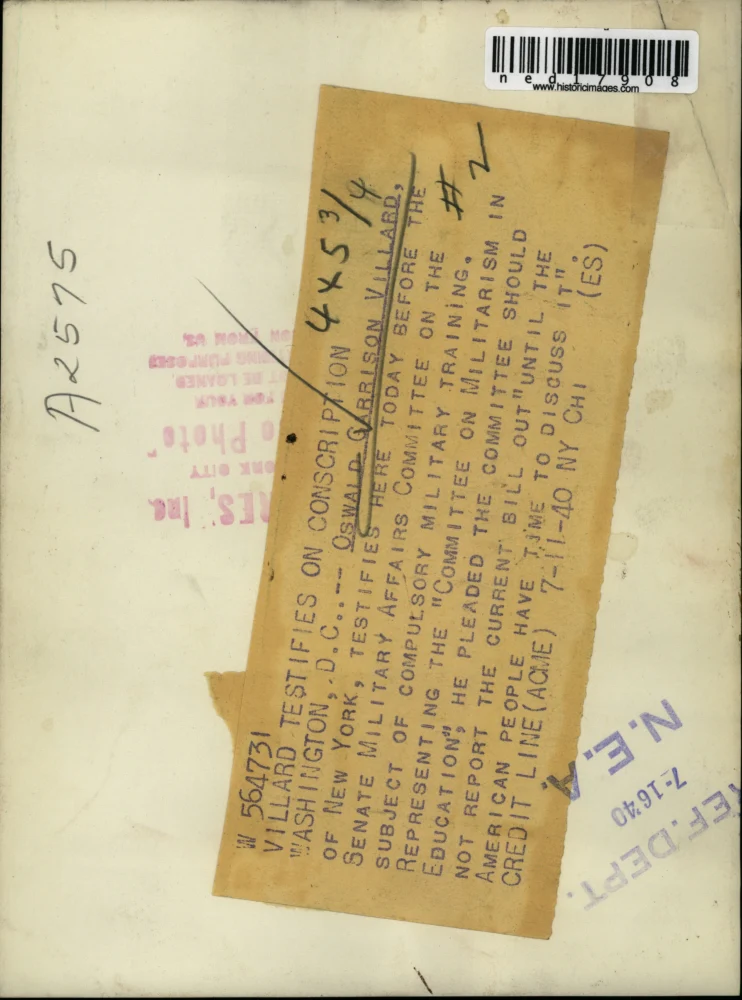 ned17908
www.historicimages.com
A2575
4x5 3/4
#2
W 564731
VILLARD TESTIFIES ON CONSCRIPTION
WASHINGTON, D.C..-- OSWALD GARRISON VILLARD,
OF NEW YORK, TESTIFIES HERE TODAY BEFORE THE
SENATE MILITARY AFFAIRS COMMITTEE ON THE
SUBJECT OF COMPULSORY MILITARY TRAINING.
REPRESENTING THE "COMMITTEE ON MILITARISM IN
EDUCATION", HE PLEADED THE COMMITTEE SHOULD
NOT REPORT THE CURRENT BILL OUT "UNTIL THE
AMERICAN PEOPLE HAVE TIME TO DISCUSS IT".
CREDIT LINE (ACME) 7-11-40 NY CHI (ES)
RES, Inc.
ORK CITY
o Photo"
FOR YOUR
T BE LOANED
ING PURPOSES
ON FROM US.
N.E.A.
7-16'40
EF. DEPT.